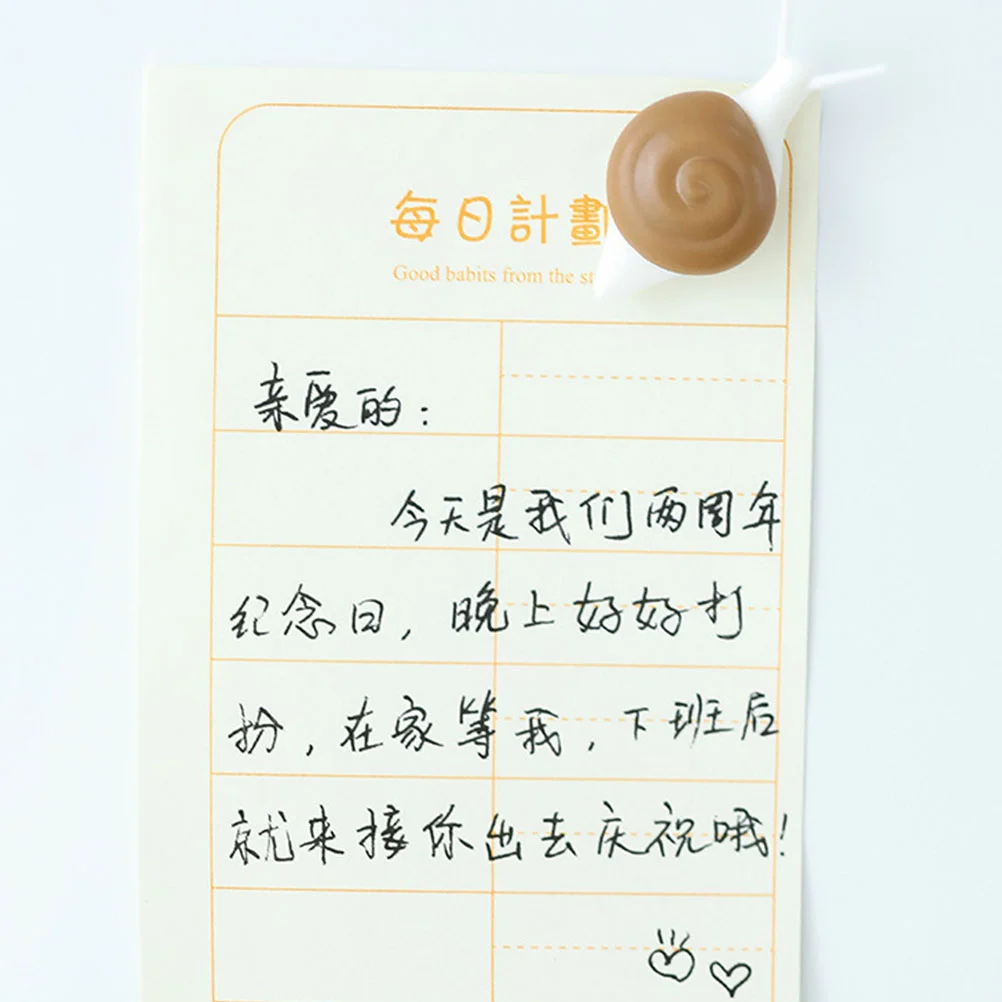 每日計劃
Good babits from the
亲爱的：
今天是我们两周年
纪念日，晚上好好打
扮，在家等我，下班后
就来接你出去庆祝哦！